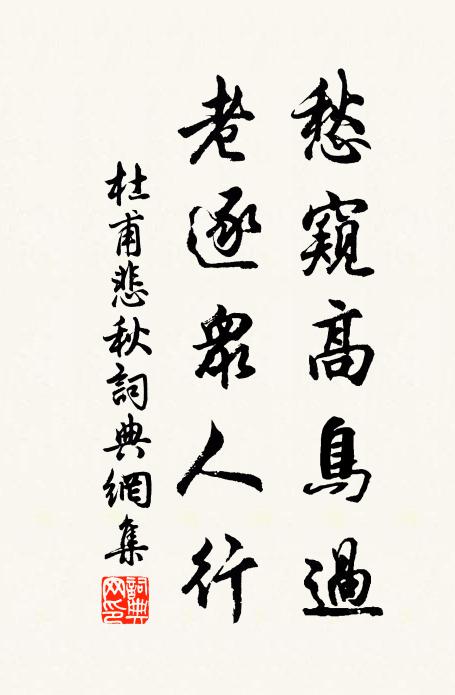 愁窺高鳥過
老逐眾人行
杜甫悲秋詞典網集
詞典網印